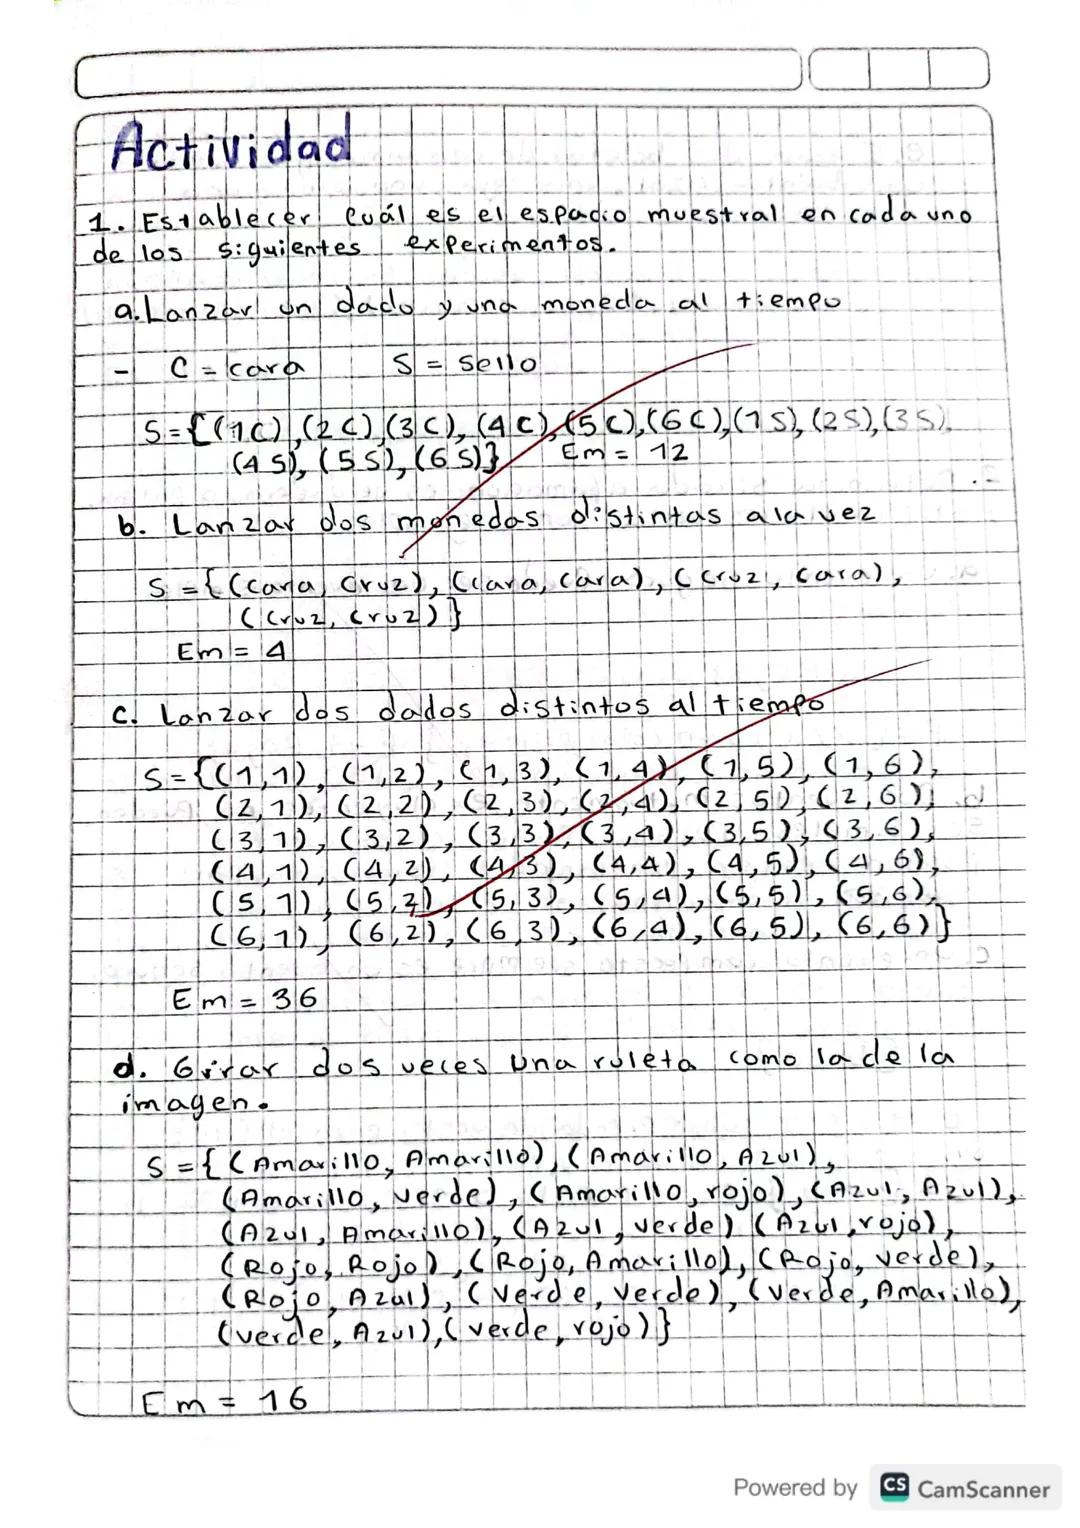 Actividad
1. Establecer cuál es el espacio muestral en cada uno
de los siguientes experimentos.
a. Lanzar un dado y una moneda al tiempo
- C = cara S = sello
S={(1C),(2C),(3C),(4C),(5C),(6C),(1S),(2S),(3S),
(4S),(5S),(6S)} Em = 12
b. Lanzar dos monedas distintas a la vez
S = {(cara, cruz), (cara, cara), (cruz, cara),
(cruz, cruz)}
Em = 4
c. Lanzar dos dados distintos al tiempo
S={(1,1), (1,2), (1,3), (1,4), (1,5), (1,6),
(2,1), (2,2), (2,3), (2,4), (2,5), (2,6),
(3,1), (3,2), (3,3), (3,4), (3,5), (3,6),
(4,1), (4,2), (4,3), (4,4), (4,5), (4,6),
(5,1), (5,2), (5,3), (5,4), (5,5), (5,6),
(6,1), (6,2), (6,3), (6,4), (6,5), (6,6)}
Em = 36
d. Girar dos veces una ruleta como la de la
imagen.
S = {(Amarillo, Amarillo), (Amarillo, Azul),
(Amarillo, verde), (Amarillo, rojo), (Azul, Azul),
(Azul, Amarillo), (Azul, verde) (Azul, rojo),
(Rojo, Rojo), (Rojo, Amarillo), (Rojo, verde),
(Rojo, Azul), (verde, verde), (verde, Amarillo),
(verde, Azul), (verde, rojo)}
Em = 16
Powered by CS CamScanner